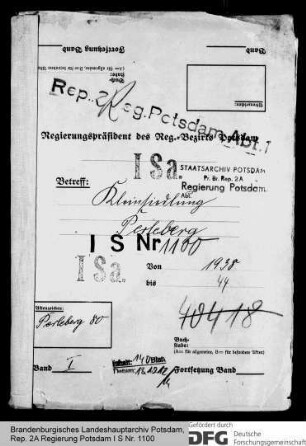 Fortsetzung Band
Band
Rep. 2 Reg. Potsdam Abt. 1
Regierungspräsident des Reg.-Bezirks Potsdam
I Sa.
STAATSARCHIV POTSDAM
Pr. Br. Rep. 2A
Regierung Potsdam
Abt.
Betreff:
Kleinsiedlung
Perleberg
I S Nr 1100
I Sa.
Von 1938
bis 44
Aktenzeichen:
Perleberg 80
40418
Buch-
stabe:
Band I
Fortsetzung Band
Brandenburgisches Landeshauptarchiv Potsdam,
Rep. 2A Regierung Potsdam I S Nr. 1100
Gefördert durch
DFG Deutsche
Forschungsgemeinschaft